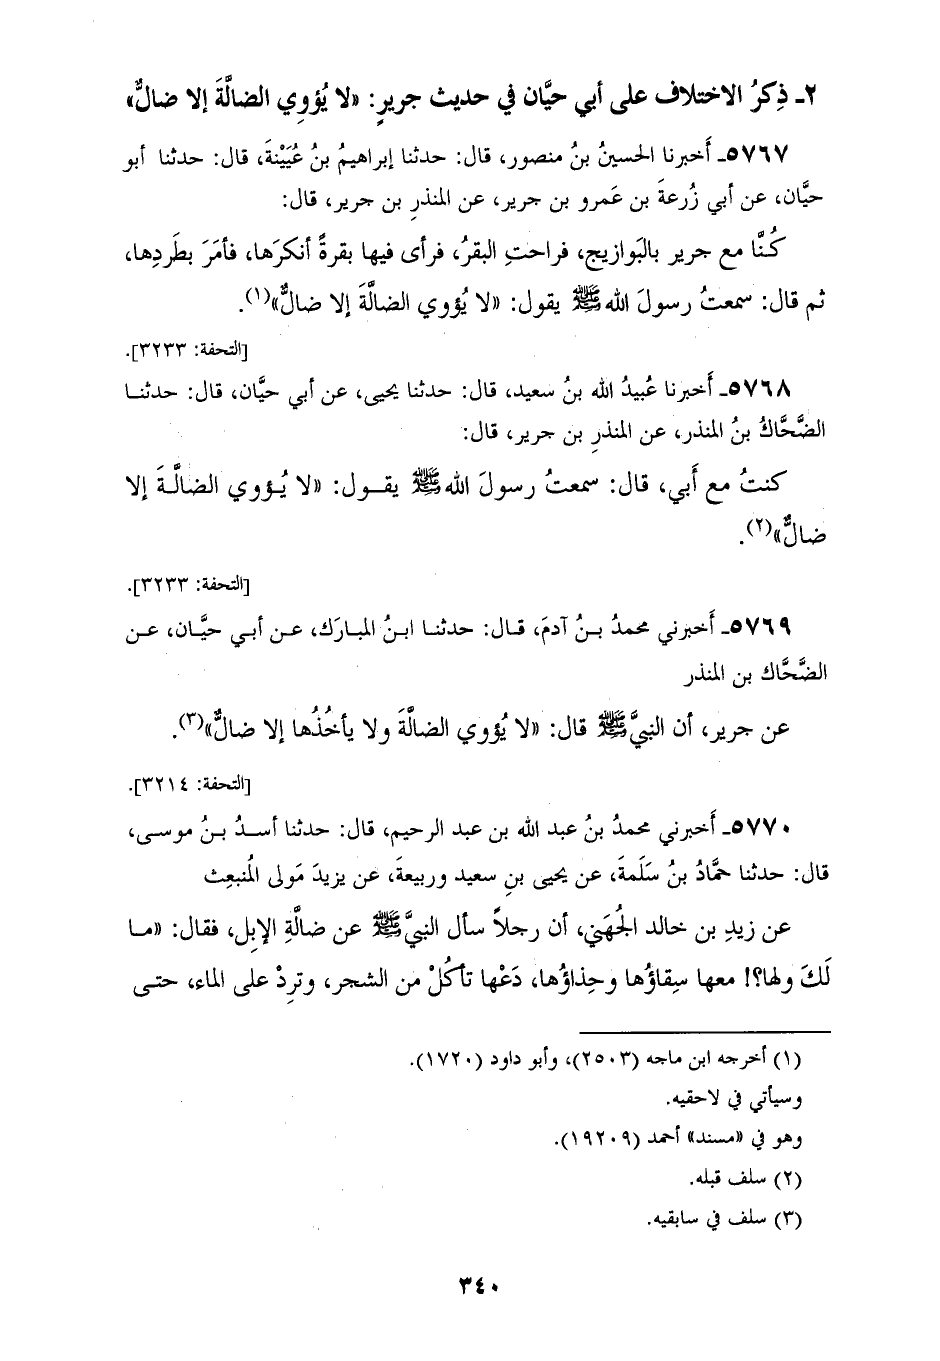 ٢ـ ذِكرُ الاختلاف على أبي حيَّان في حديث جريرٍ: «لا يُؤوِي الضالَّةَ إلا ضالٌّ»
٥٧٦٧ـ أَخبرنا الحسينُ بنُ منصور، قال: حدثنا إبراهيمُ بنُ عُيَيْنةَ، قال: حدثنا أبو
حيَّان، عن أبي زُرعةَ بن عَمرو بن جرير، عن المنذرِ بن جرير، قال:
كُنَّا مع جرير بالبَوازيج، فراحتِ البقرُ، فرأى فيها بقرةً أنكرَها، فأمَرَ بطَردِها،
ثم قال: سمعتُ رسولَ اللهﷺ يقول: «لا يُؤوي الضالَّةَ إلا ضالٌّ»(١).
[التحفة: ٣٢٣٣].
٥٧٦٨ـ أَخبرنا عُبيدُ الله بنُ سعيد، قال: حدثنا يحيى، عن أبي حيَّان، قال: حدثنـا
الضَّحَّاكُ بنُ المنذر، عن المنذرِ بن جرير، قال:
كنتُ مع أَبي، قال: سمعتُ رسولَ اللهﷺ يقـول: «لا يُـؤوي الضالَّـةَ إلا
ضالٌّ»(٢).
[التحفة: ٣٢٣٣].
٥٧٦٩ـ أَخبرني محمدُ بـنُ آدمَ، قـال: حدثنـا ابـنُ المبـارَك، عـن أبـي حيَّـان، عـن
الضَّحَّاك بن المنذر
عن جرير، أن النبيَّﷺ قال: «لا يُؤوي الضالَّةَ ولا يأخُذُها إلا ضالٌّ»(٣).
[التحفة: ٣٢١٤].
٥٧٧٠ـ أَخبرني محمدُ بنُ عبد الله بن عبد الرحيم، قال: حدثنا أسـدُ بـنُ موسـى،
قال: حدثنا حمَّادُ بنُ سَلَمةَ، عن يحيى بنِ سعيد وربيعةَ، عن يزيدَ مَولى الُمنبعِث
عن زيدِ بن خالد الجُهَني، أن رجلاً سأل النبيَّﷺ عن ضالَّةِ الإبِل، فقال: «مـا
لَكَ ولها؟! معها سِقاؤُها وحِذاؤُها، دَعْها تأكُلْ من الشجر، وترِدْ على الماء، حتـى
(١) أخرجه ابن ماجه (٢٥٠٣)، وأبو داود (١٧٢٠).
وسيأتي في لاحقيه.
وهو في «مسند» أحمد (١٩٢٠٩).
(٢) سلف قبله.
(٣) سلف في سابقيه.
٣٤٠